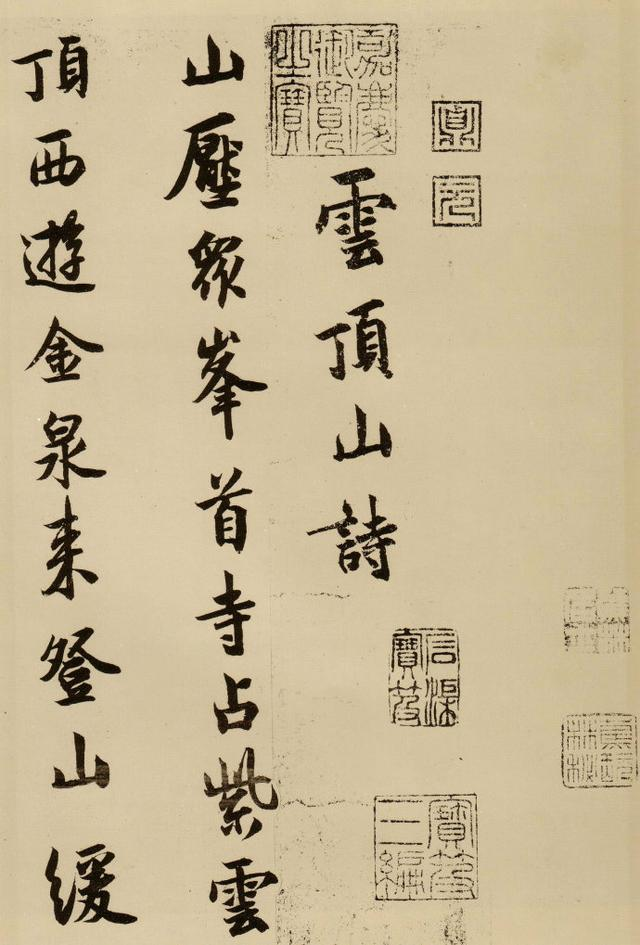 雲頂山詩
山壓眾峯首寺占紫雲
頂西遊金泉來登山緩
嘉慶御覽之寶
石渠寶笈
寶笈三編